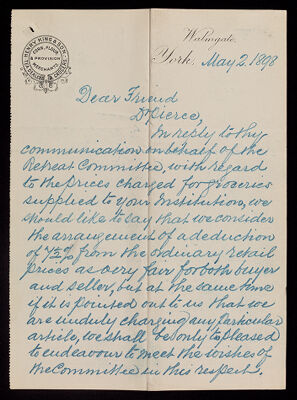 HENRY KING & SON
CORN, FLOUR
& PROVISION
MERCHANTS
Walmgate,
York, May 2. 1898
Dear Friend
Dr Pierce,
In reply to thy
communication on behalf of the
Retreat Committee, with regard
to the prices charged for groceries
supplied to your Institution, we
should like to say that we consider
the arrangement of a deduction
of from the ordinary retail
prices as very fair for both buyer
and seller, but at the same time
if it is pointed out to us that we
are unduly charging any particular
article, we shall be only to pleased
to endeavour to meet the wishes of
the Committee in this respect.